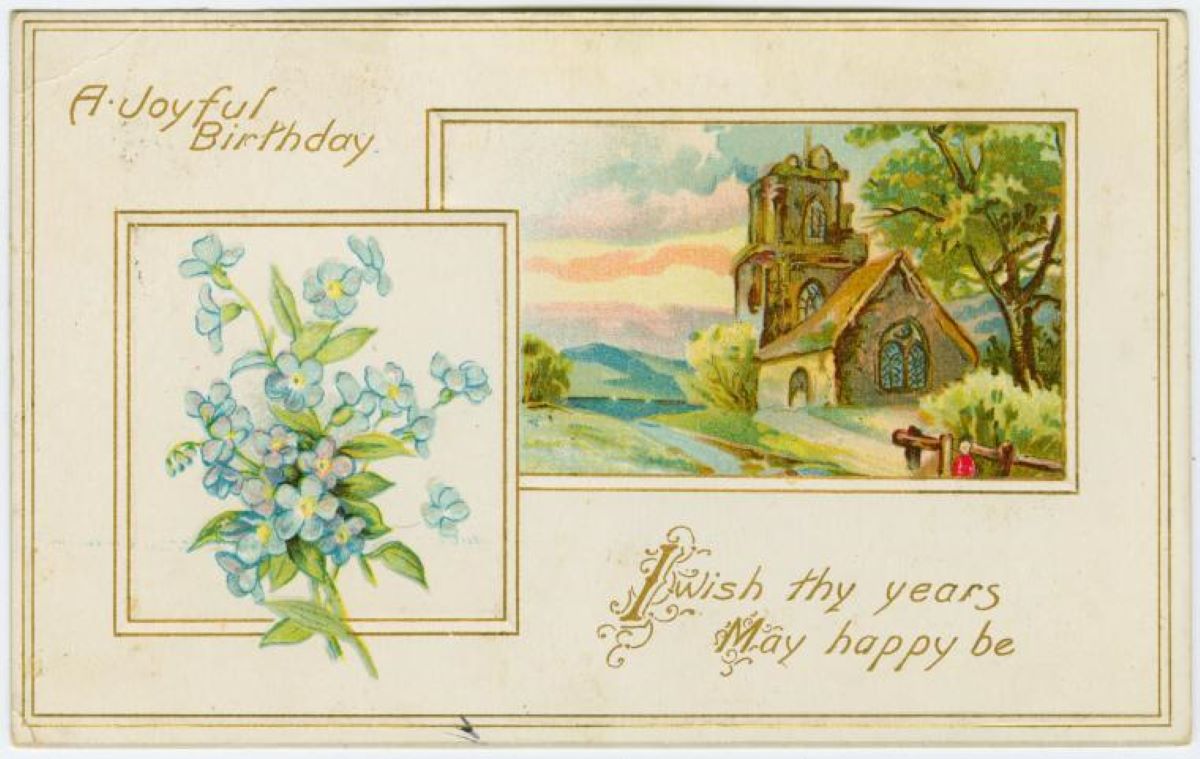 A Joyful
Birthday
I wish thy years
May happy be